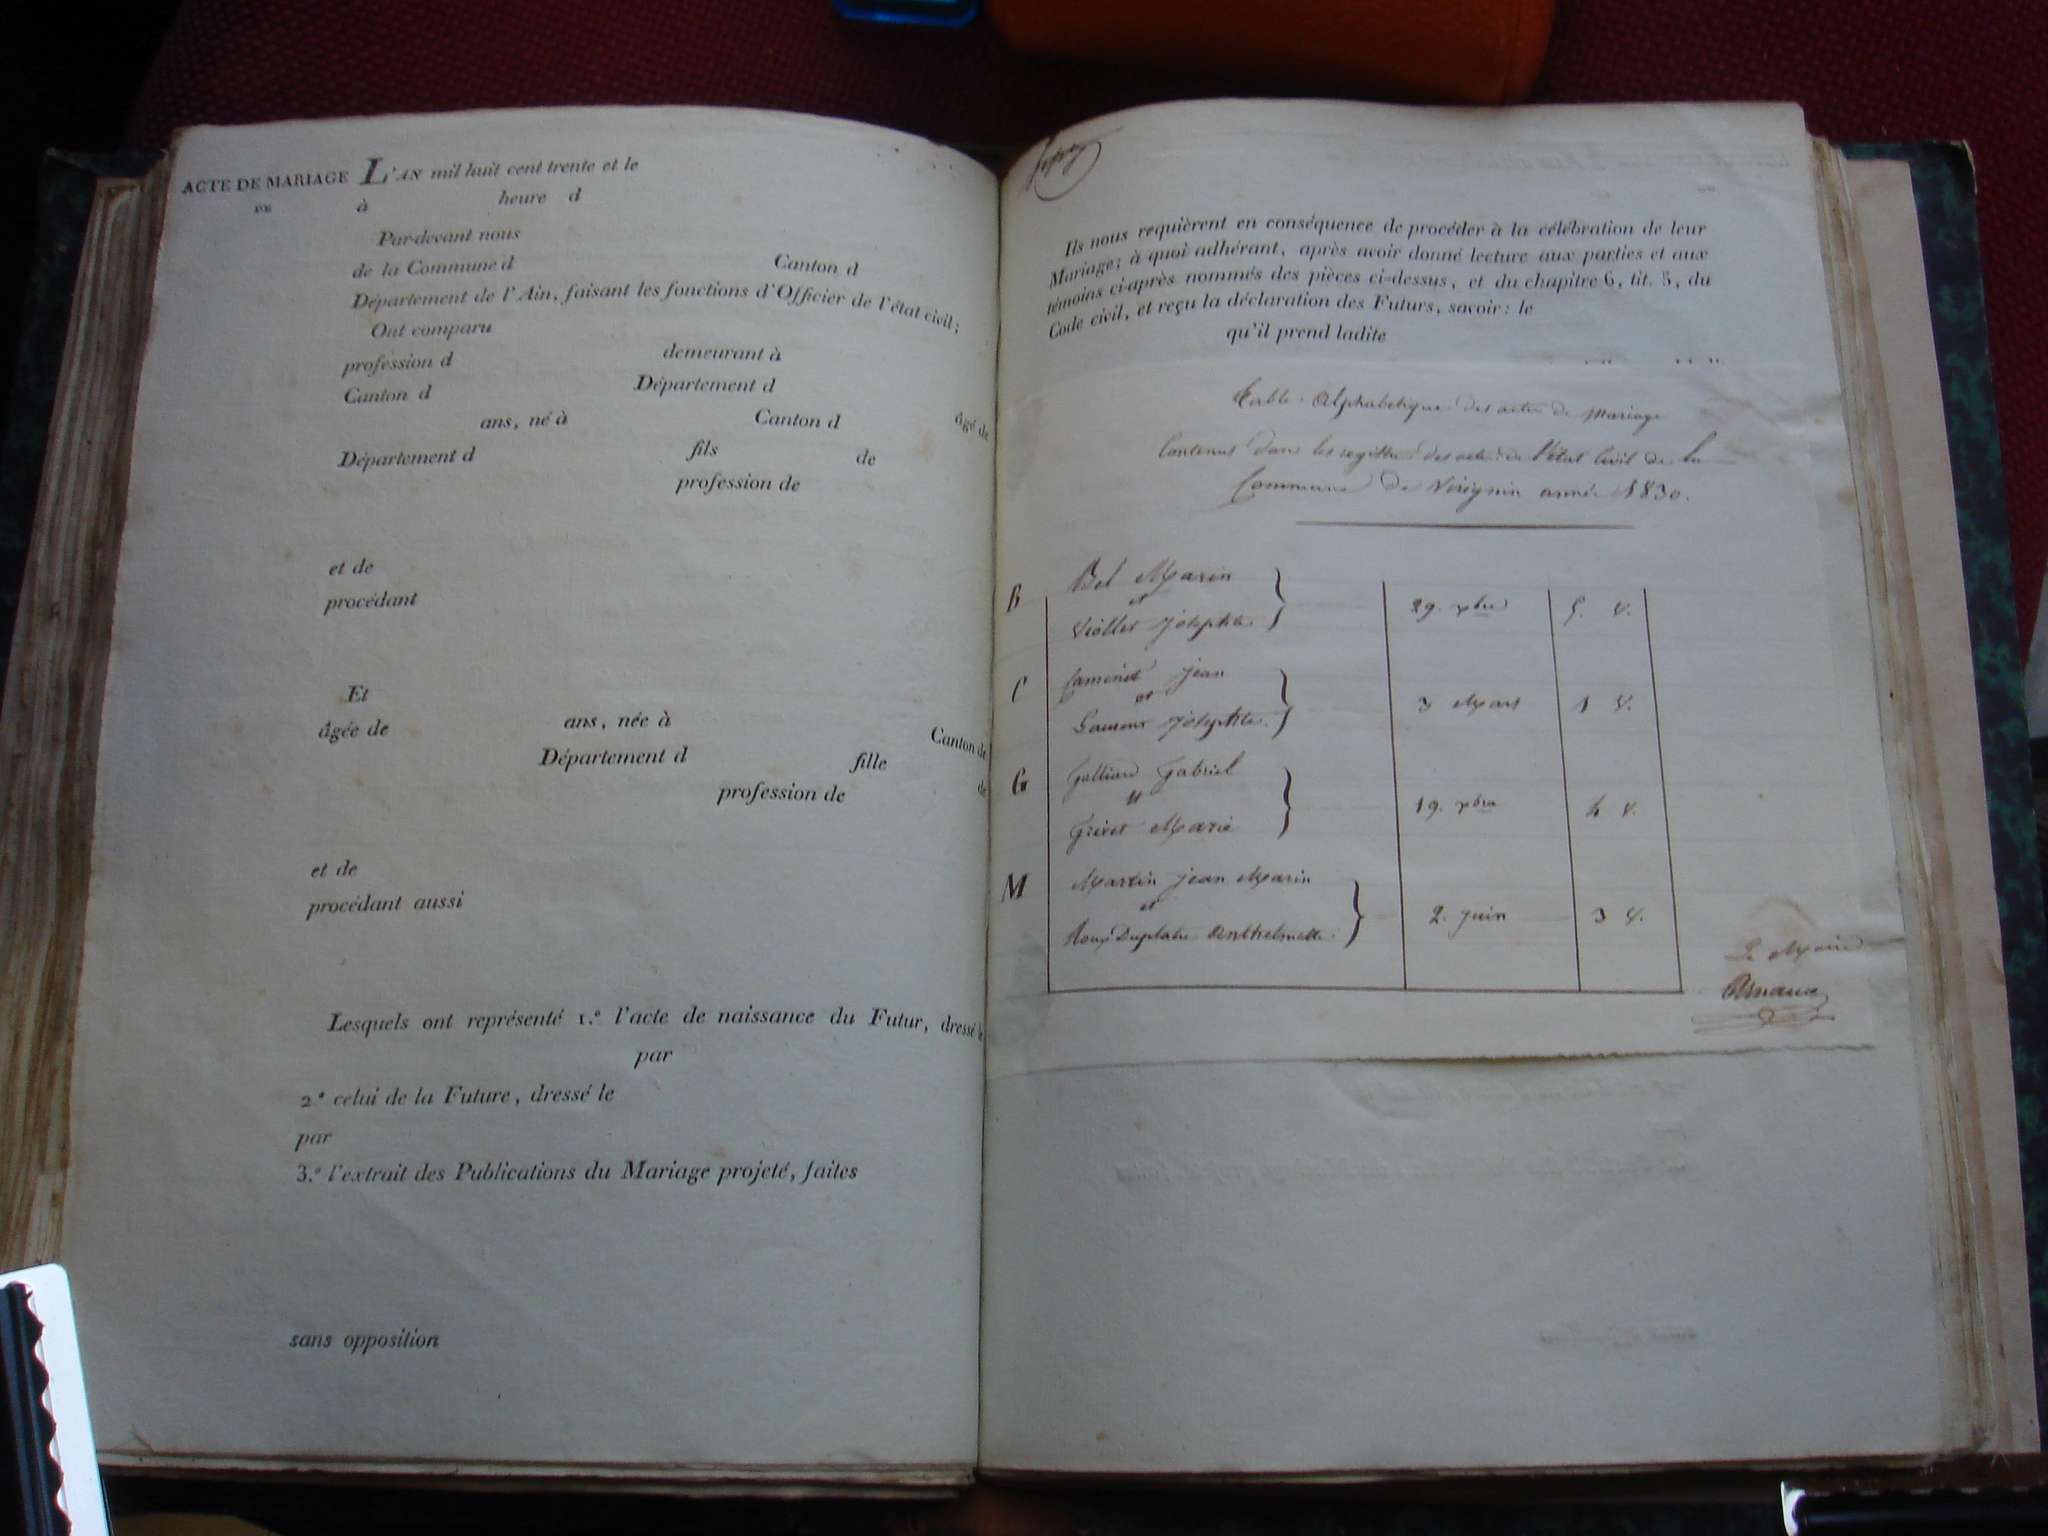 ACTE DE MARIAGE L'AN mil huit cent trente et le
DE à heure d
Par-devant nous
de la Commune d Canton d
Département de l'Ain, faisant les fonctions d'Officier de l'état civil;
Ont comparu
profession d demeurant à
Canton d Département d
âgé de
ans, né à Canton d
Département d fils de
profession de
et de
procédant
Et
âgée de ans, née à Canton de
Département d fille de
profession de
et de
procédant aussi
Lesquels ont représenté 1.° l'acte de naissance du Futur, dressé le
par
2.° celui de la Future, dressé le
par
3.° l'extrait des Publications du Mariage projeté, faites
sans opposition
Ils nous requièrent en conséquence de procéder à la célébration de leur
Mariage; à quoi adhérant, après avoir donné lecture aux parties et aux
témoins ci-après nommés des pièces ci-dessus, et du chapitre 6, tit. 5, du
Code civil, et reçu la déclaration des Futurs, savoir: le
qu'il prend ladite
Table Alphabetique des actes de Mariage
Contenus dans les registres des actes de l'état Civil de la
Commune de Virignin année 1830.
B Bel Marin
et 29. xbre 5. V.
Viollet Josephte
C Caminet Jean
et 3 Mars 1 V.
Laurent Josephte
G Galliard Gabriel
et 19. xbre 4 V.
Grivet Marie
M Martin Jean Marin
et 2. Juin 3 V.
Roux Duplatre Anthelmette
Le Maire
Arnaud